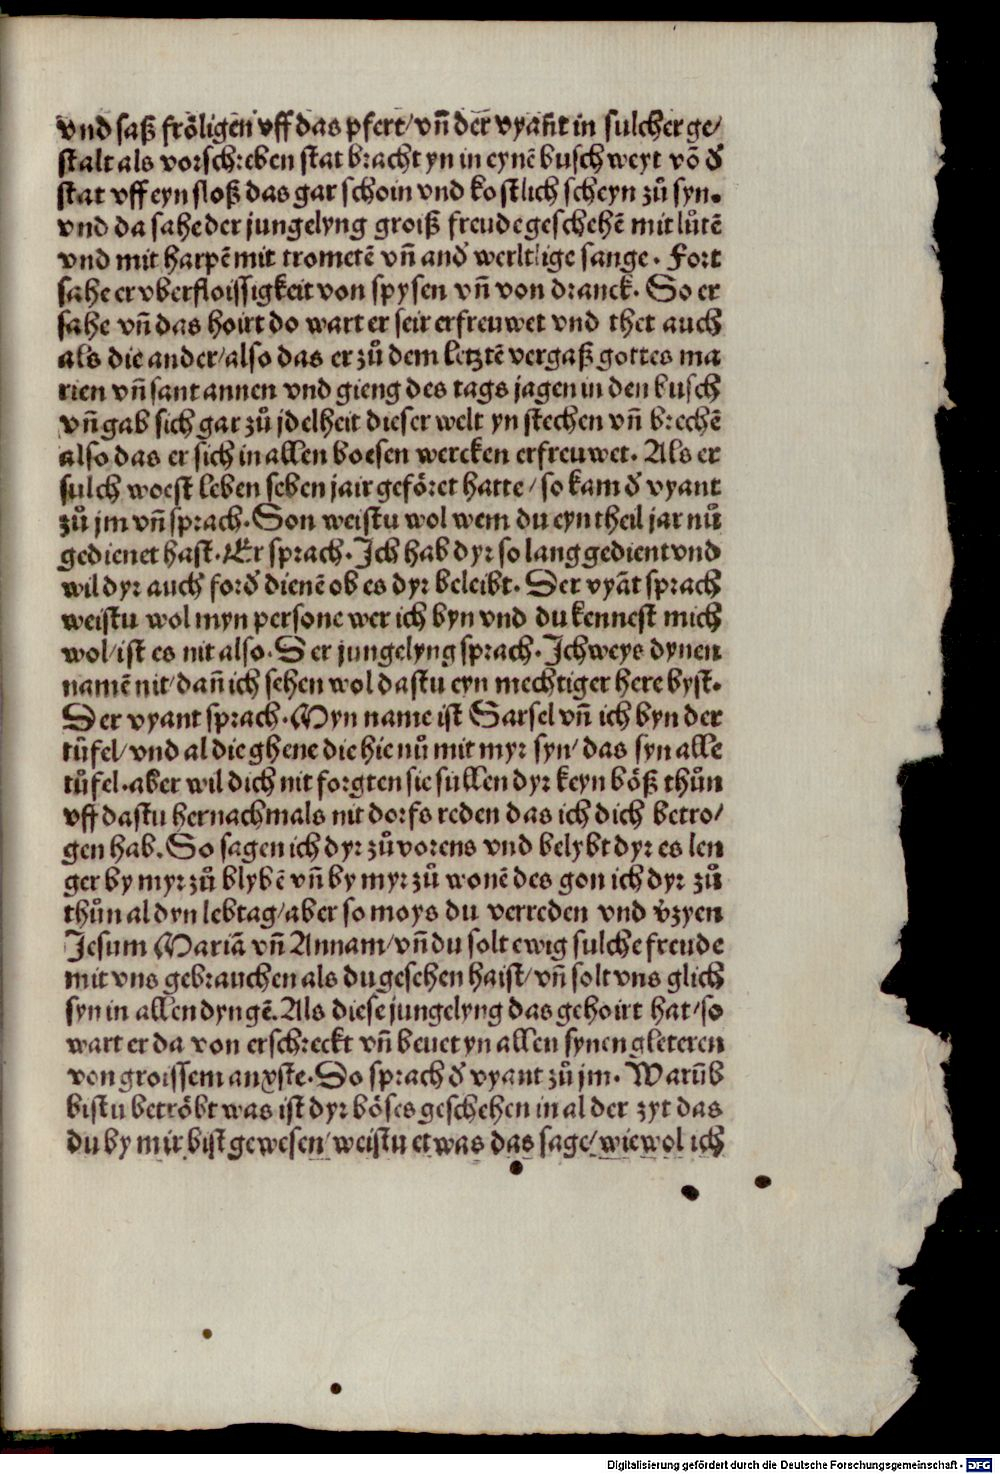 vnd saß fröligen vff das pfert/ vn̄ der vyan̄t in sulcher ge/
stalt als vorschreben stat bracht yn in eynē busch weyt vō d̓
stat vff eyn sloß das gar schoin vnd kostlich scheyn zů syn.
vnd da sahe der jungelyng groiß freude geschehē mit lůtē
vnd mit harpē mit trometē vn̄ and̓ werltlige sange. Fort
sahe er vberfloissigkeit von spysen vn̄ von dranck. So er
sahe vn̄ das hoirt do wart er seir erfreuwet vnd thet auch
als die ander/ also das er zů dem letztē vergaß gottes ma
rien vn̄ sant annen vnd gieng des tags jagen in den busch
vn̄ gab sich gar zů jdelheit dieser welt yn stechen vn̄ brechē
also das er sich in allen boesen wercken erfreuwet. Als er
sulch woest leben seben jair geföret hatte/ so kam d̓ vyant
zů jm vn̄ sprach. Son weistu wol wem du eyn theil jar nů
gedienet hast. Er sprach. Ich hab dyr so lang gedient vnd
wil dyr auch ford̓ dienē ob es dyr beleibt. Der vyāt sprach
weistu wol myn persone wer ich byn vnd du kennest mich
wol/ ist es nit also. Der jungelyng sprach. Ich weys dynen
namē nit/ dan̄ ich sehen wol dastu eyn mechtiger here byst.
Der vyant sprach. Myn name ist Sarsel vn̄ ich byn der
tüfel/ vnd al die ghene die hie nů mit myr syn/ das syn alle
tůfel. aber wil dich nit forgten sie sullen dyr keyn böß thůn
vff dastu hernachmals nit dorfs reden das ich dich betro/
gen hab. So sagen ich dyr zů vorens vnd belybt dyr es len
ger by myr zů blybē vn̄ by myr zů wonē des gon ich dyr zů
thůn al dyn lebtag/ aber so moys du verreden vnd v̓zyen
Jesum Mariā vn̄ Annam/ vn̄ du solt ewig sulche freude
mit vns gebrauchen als du gesehen haist/ vn̄ solt vns glich
syn in allen dyngē. Als diese jungelyng das gehoirt hat/ so
wart er da von erschreckt vn̄ beuet yn allen synen gleteren
von groissem anxste. Do sprach d̓ vyant zů jm. Warūb
bistu betröbt was ist dyr böses geschehen in al der zyt das
du by mir bist gewesen/ weistu etwas das sage/ wiewol ich
Digitalisierung gefördert durch die Deutsche Forschungsgemeinschaft - DFG